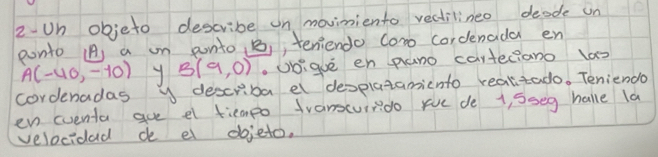 2-Un objeto describe un movimiento rectilineo desde un
punto A a un punto B, teniendo como cordenada en
A(-40,-10) y B(9,0). Ubique en plano carteciano las
cordenadas y describa el desplazamiento realizado. Teniendo
en cuenta que el tiempo transcurrido fue de 1,5seg halle la
velocidad de el objeto.